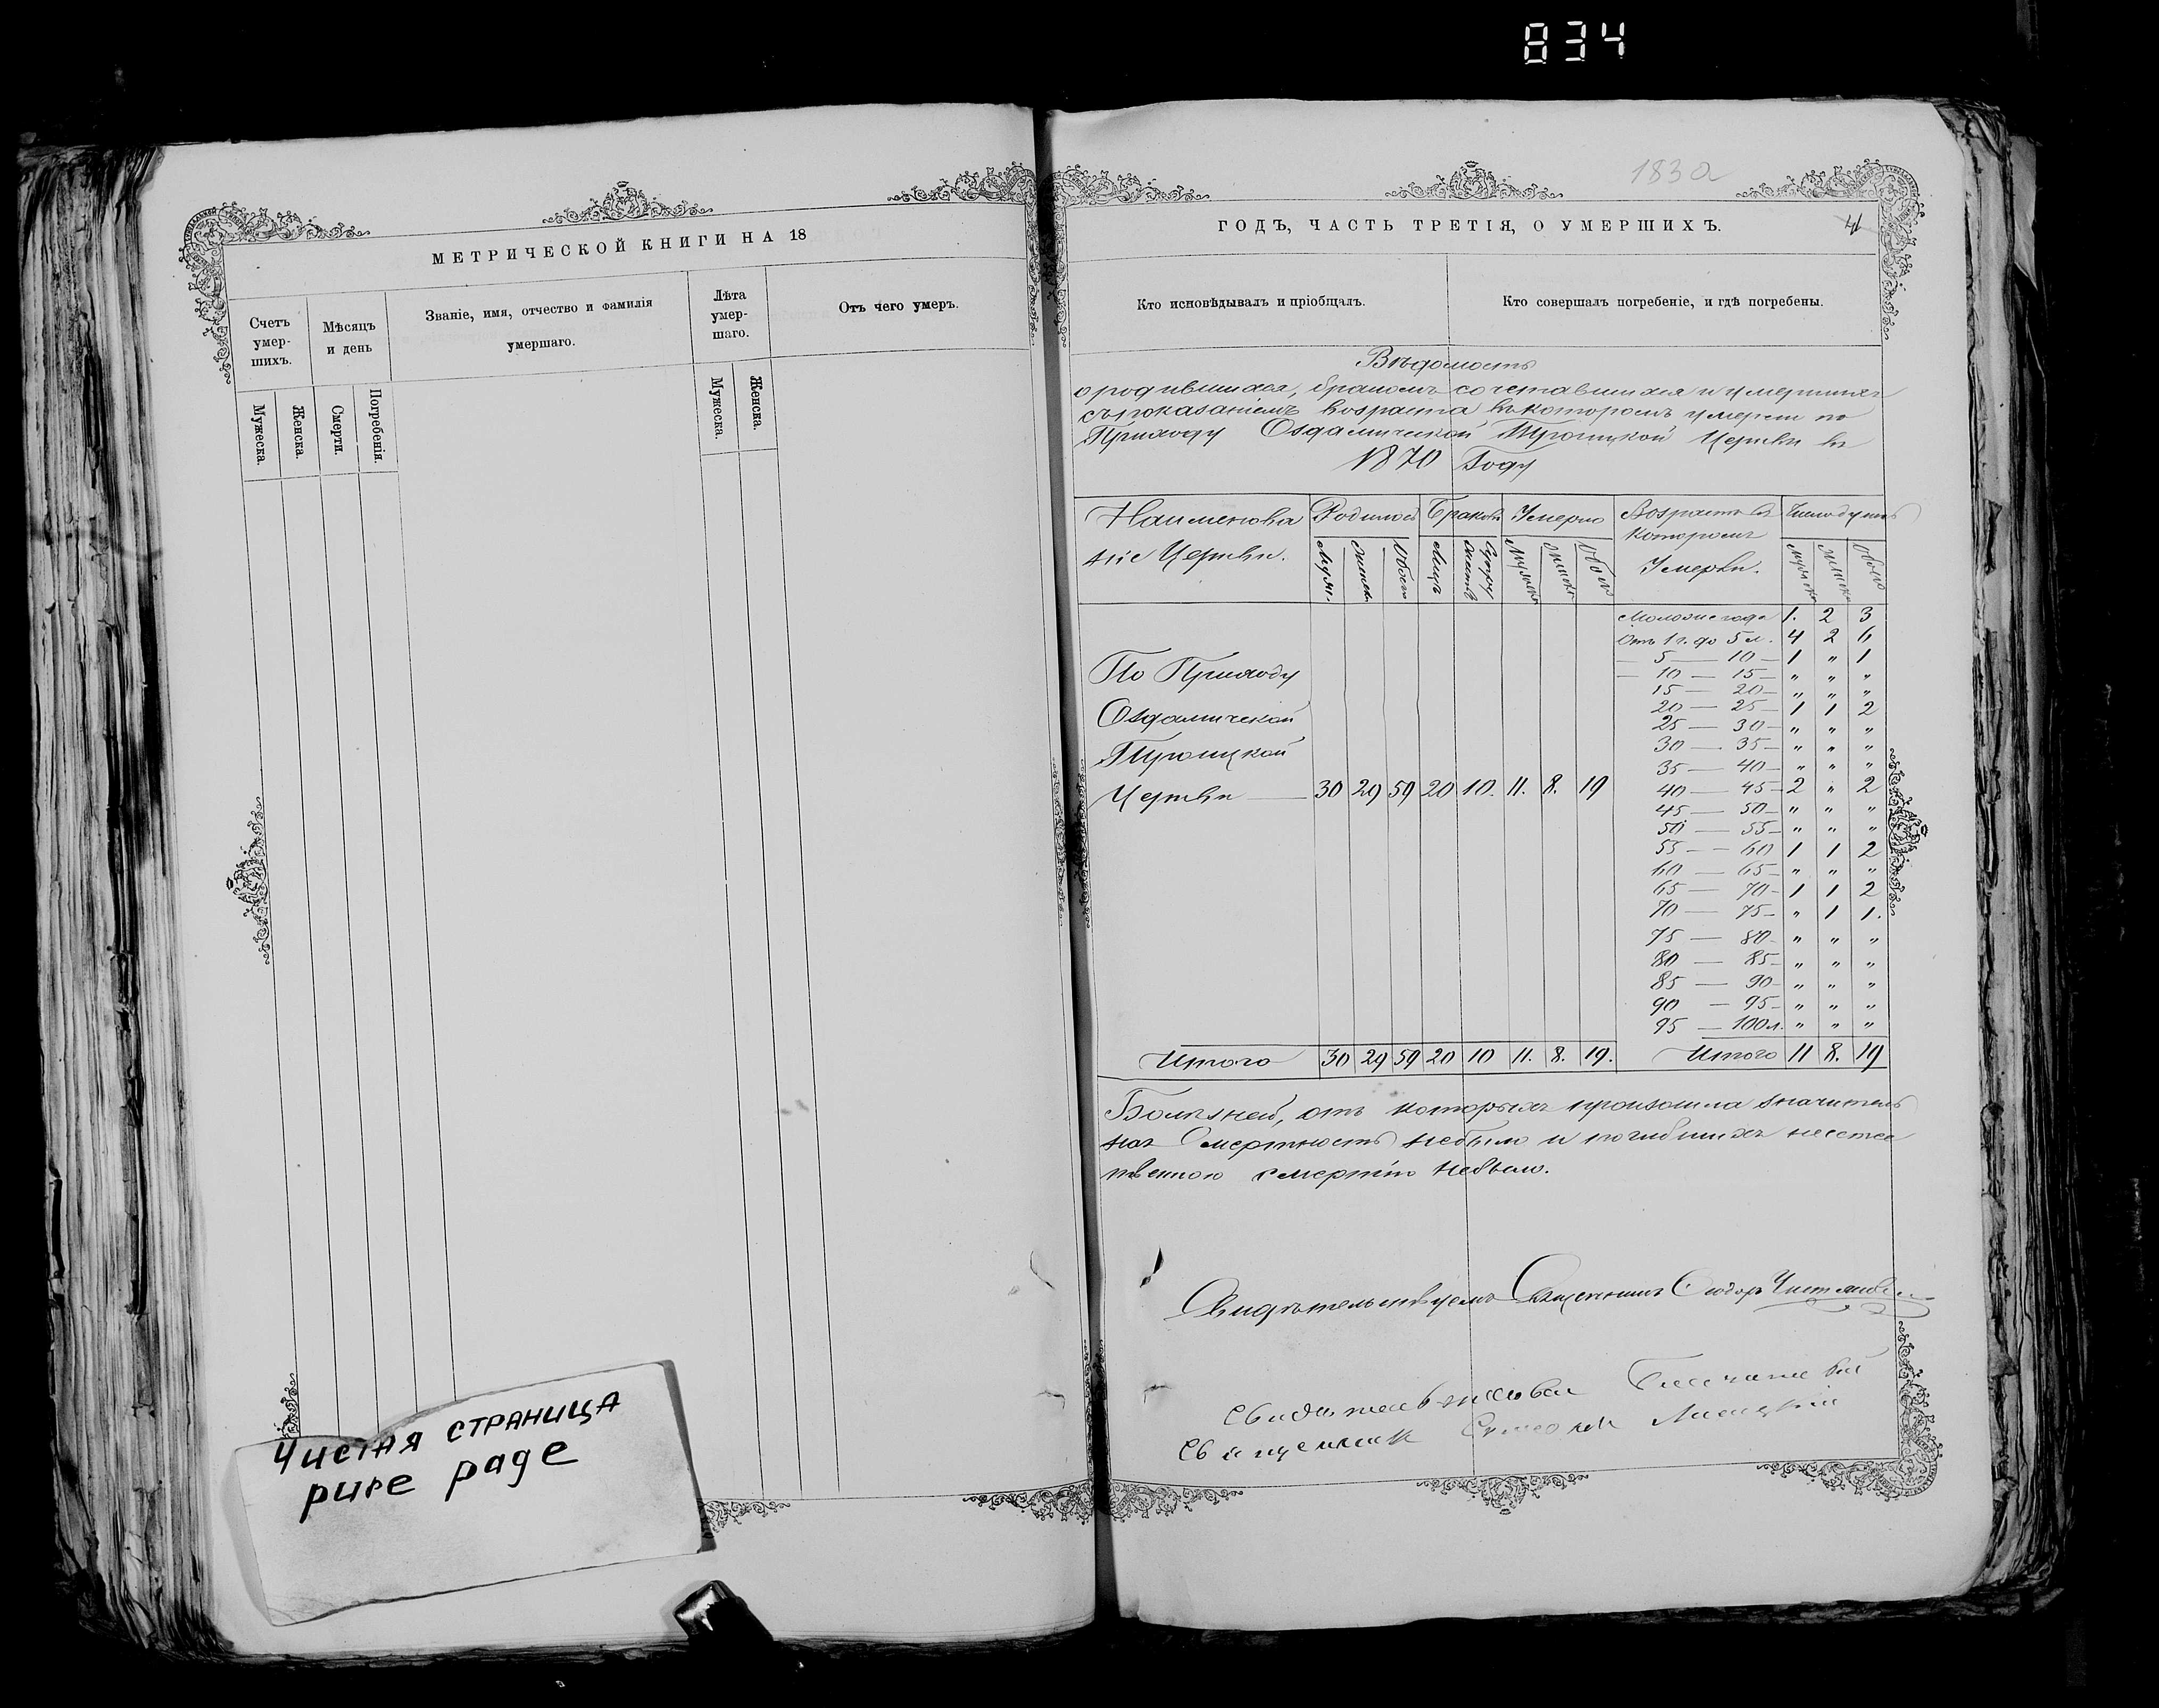 834
МЕТРИЧЕСКОЙ КНИГИ НА 18
Счетъ умер-шихъ.
Мѣсяцъ и день
Званіе, имя, отчество и фамилія умершаго.
Лѣта умер-шаго.
Отъ чего умеръ.
Мужеска.
Женска.
Смерти.
Погребенія.
Мужеска.
Женска.
Чистая страница
pure page
183а
ГОДЪ, ЧАСТЬ ТРЕТІЯ, О УМЕРШИХЪ.
Кто исповѣдывалъ и пріобщалъ.
Кто совершалъ погребеніе, и гдѣ погребены.
Вѣдомость
о родившихся, бракомъ сочетавшихся и умершихъ
съ показаніемъ возраста въ которомъ умерли по
Приходу Оздамичской Троицкой Церкви въ
1870 Году
Наименова Родилось Браковъ Умерло Возрастъ въ Число душъ
ніе Церкви. которомъ
Умерли.
Моложе года 1. 2 3
Отъ 1 г. до 5 л. 4 2 6
— 5 — 10 — 1 " 1
— 10 — 15 — " " "
15 — 20 — " " "
20 — 25 — 1 1 2
25 — 30 — " " "
30 — 35 — " " "
35 — 40 — " " "
40 — 45 — 2 " 2
45 — 50 — " " "
50 — 55 — " " "
55 — 60 1 1 2
60 — 65 — " " "
65 — 70 — 1 1 2
70 — 75 — " 1 1.
75 — 80 — " " "
80 — 85 — " " "
85 — 90 — " " "
90 — 95 — " " "
95 — 100 л. " " "
По Приходу
Оздамичской
Троицкой
Церкви — 30 29 59 20 10. 11. 8. 19
Итого 30 29 59 20 10 11. 8. 19. Итого 11 8. 19
Болѣзней, отъ которыхъ произошла значитель
ная Смертность небыло и погибшихъ неестес
твенною смертію небыло.
Свидѣтельствуемъ Священникъ Ѳеодоръ
Священник